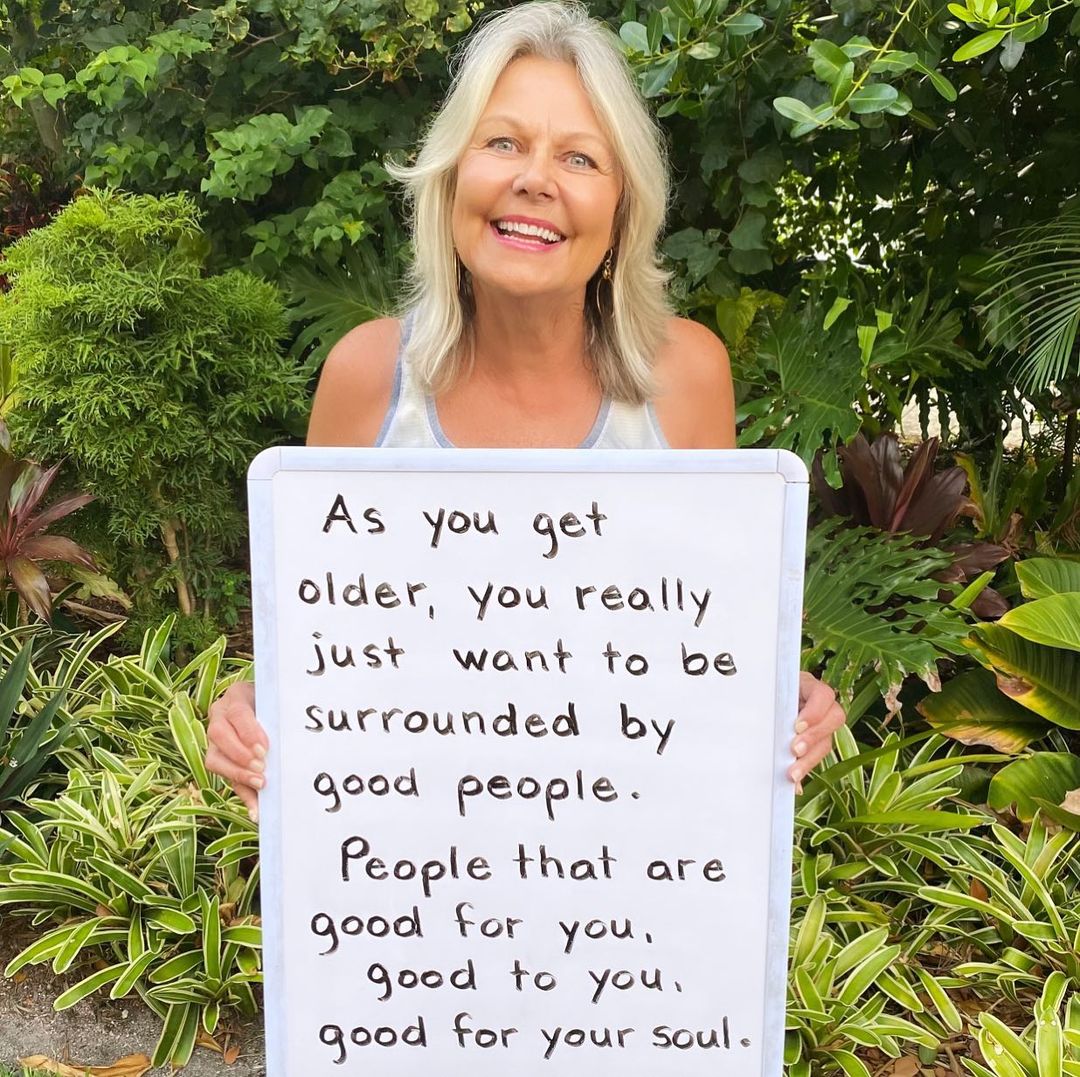 As you get
older, you really
just want to be
surrounded by
good people.
People that are
good for you,
good to you,
good for your soul.